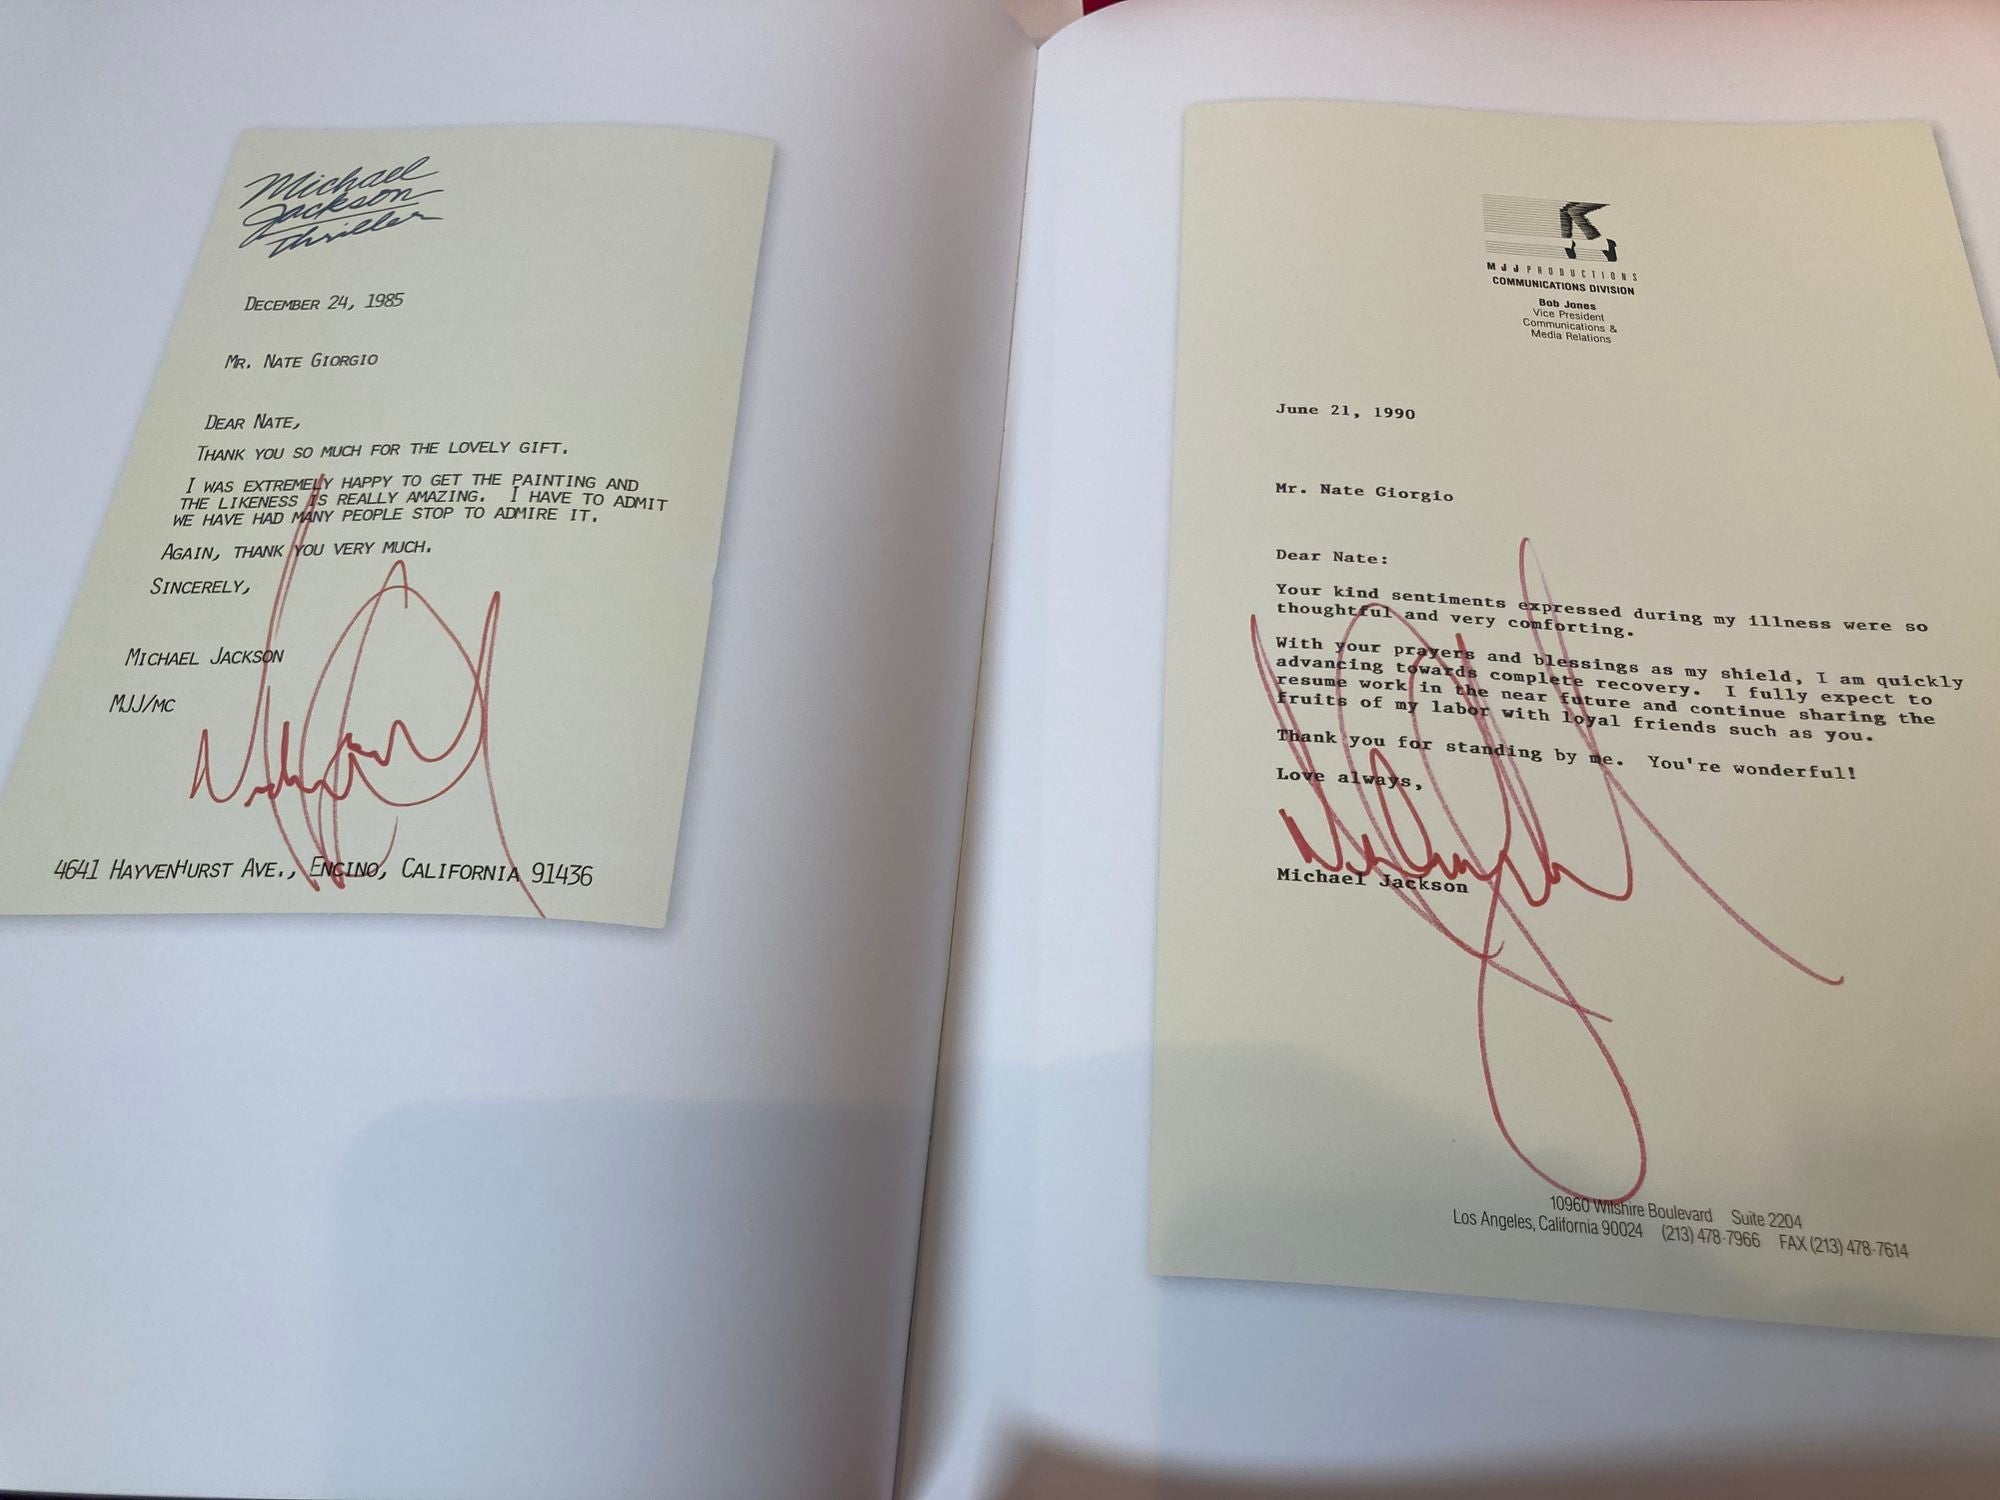 Michael
Jackson
Thriller
DECEMBER 24, 1985
MR. NATE GIORGIO
DEAR NATE,
THANK YOU SO MUCH FOR THE LOVELY GIFT.
I WAS EXTREMELY HAPPY TO GET THE PAINTING AND
THE LIKENESS IS REALLY AMAZING. I HAVE TO ADMIT
WE HAVE HAD MANY PEOPLE STOP TO ADMIRE IT.
AGAIN, THANK YOU VERY MUCH.
SINCERELY,
MICHAEL JACKSON
MJJ/MC
4641 HAYVENHURST AVE., ENCINO, CALIFORNIA 91436
MJJ PRODUCTIONS
COMMUNICATIONS DIVISION
Bob Jones
Vice President
Communications &
Media Relations
June 21, 1990
Mr. Nate Giorgio
Dear Nate:
Your kind sentiments expressed during my illness were so
thoughtful and very comforting.
With your prayers and blessings as my shield, I am quickly
advancing towards complete recovery. I fully expect to
resume work in the near future and continue sharing the
fruits of my labor with loyal friends such as you.
Thank you for standing by me. You're wonderful!
Love always,
Michael Jackson
10960 Wilshire Boulevard Suite 2204
Los Angeles, California 90024 (213) 478-7966 FAX (213) 478-7614